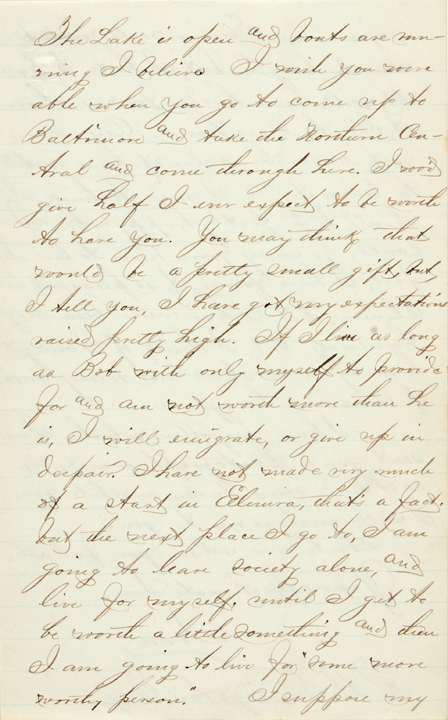 The Lake is open and boats are run-
ning I believe I wish you were
able when you go to come up to
Baltimore and take the Northern Cen-
tral and come through here. I wood
give half I ever expect to be worth
to have you. You may think that
would be a pretty small gift, but,
I tell you, I have got my expectations
raised pretty high. If I live as long
as Bob with only myself to provide
for and am not worth more than he
is, I will emigrate, or give up in
despair. I have not made very much
of a start in Elmira, that's a fact.
but the next place I go to, I am
going to leave society alone, and
live for myself. until I get to
be worth a little something and then
I am going to live for "some more
worthy person." I suppose my